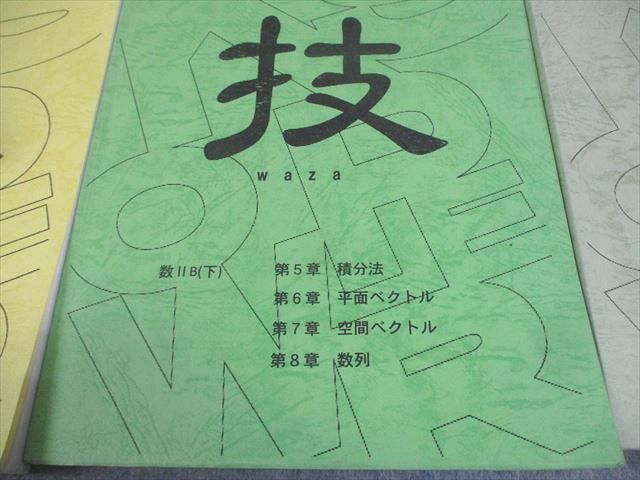 技
waza
数IIB(下)
第5章 積分法
第6章 平面ベクトル
第7章 空間ベクトル
第8章 数列